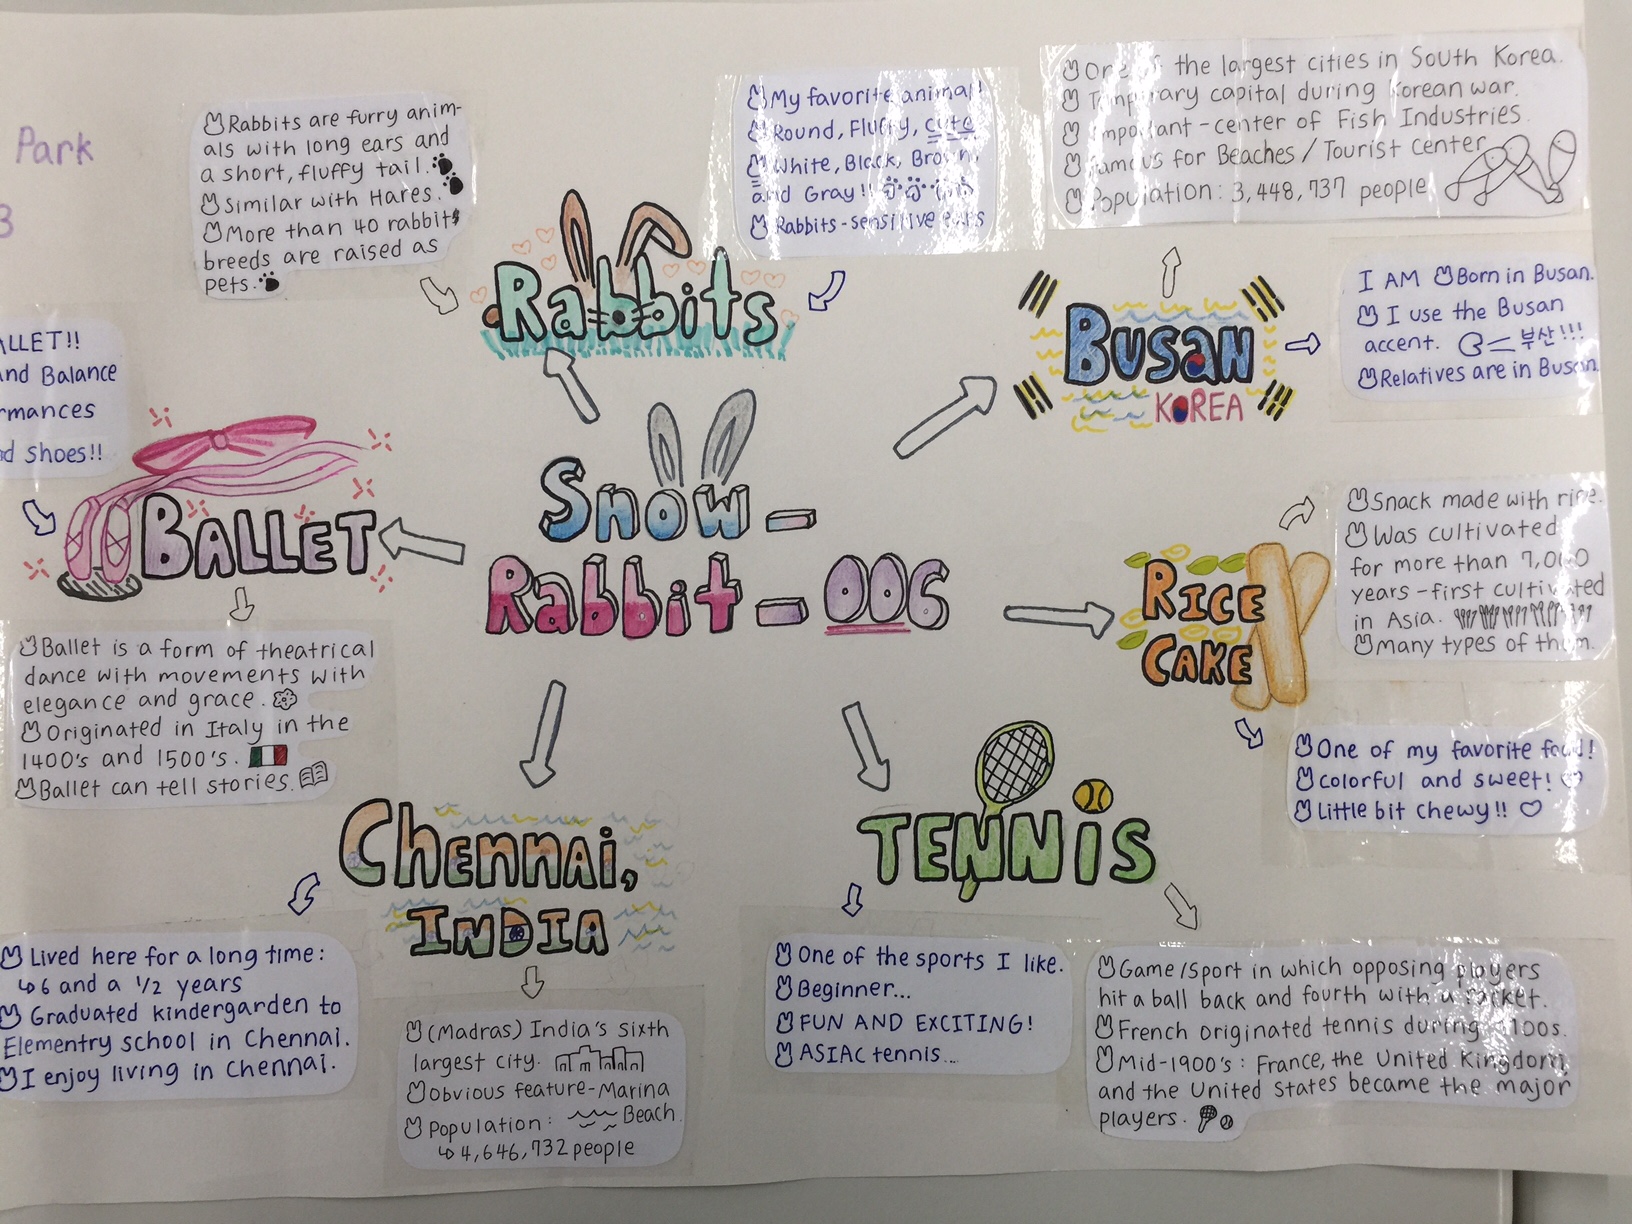 Park
3
Rabbits are furry anim-
als with long ears and
a short, fluffy tail.
Similar with Hares.
More than 40 rabbits
breeds are raised as
pets.
My favorite animal!
Round, Fluffy, cute
White, Black, Brown,
and Gray!!
Rabbits-sensitive ears
One of the largest cities in South Korea.
Temporary capital during Korean war.
Important-center of Fish Industries.
Famous for Beaches / Tourist center
Population: 3,448,737 people
Rabbits
BUSAN
KOREA
I AM Born in Busan.
I use the Busan
accent. 부산!!!
Relatives are in Busan.
ALLET!!
and Balance
rmances
nd shoes!!
BALLET
Snow-
Rabbit-006
RICE
CAKE
Snack made with rice.
Was cultivated
for more than 7,000
years-first cultivated
in Asia.
many types of them.
One of my favorite food!
colorful and sweet!
Little bit chewy!!
Ballet is a form of theatrical
dance with movements with
elegance and grace.
Originated in Italy in the
1400's and 1500's.
Ballet can tell stories.
CHENNAi,
INDIA
TENNiS
Lived here for a long time:
↳6 and a 1/2 years
Graduated kindergarden to
Elementry school in Chennai.
I enjoy living in Chennai.
(Madras) India's sixth
largest city.
Obvious feature-Marina
Beach
Population:
↳4,646,732 people
One of the sports I like.
Beginner...
FUN AND EXCITING!
ASIAC tennis...
Game/Sport in which opposing players
hit a ball back and fourth with a racket.
French originated tennis during 1100s.
Mid-1900's: France, the United Kingdom,
and the United States became the major
players.